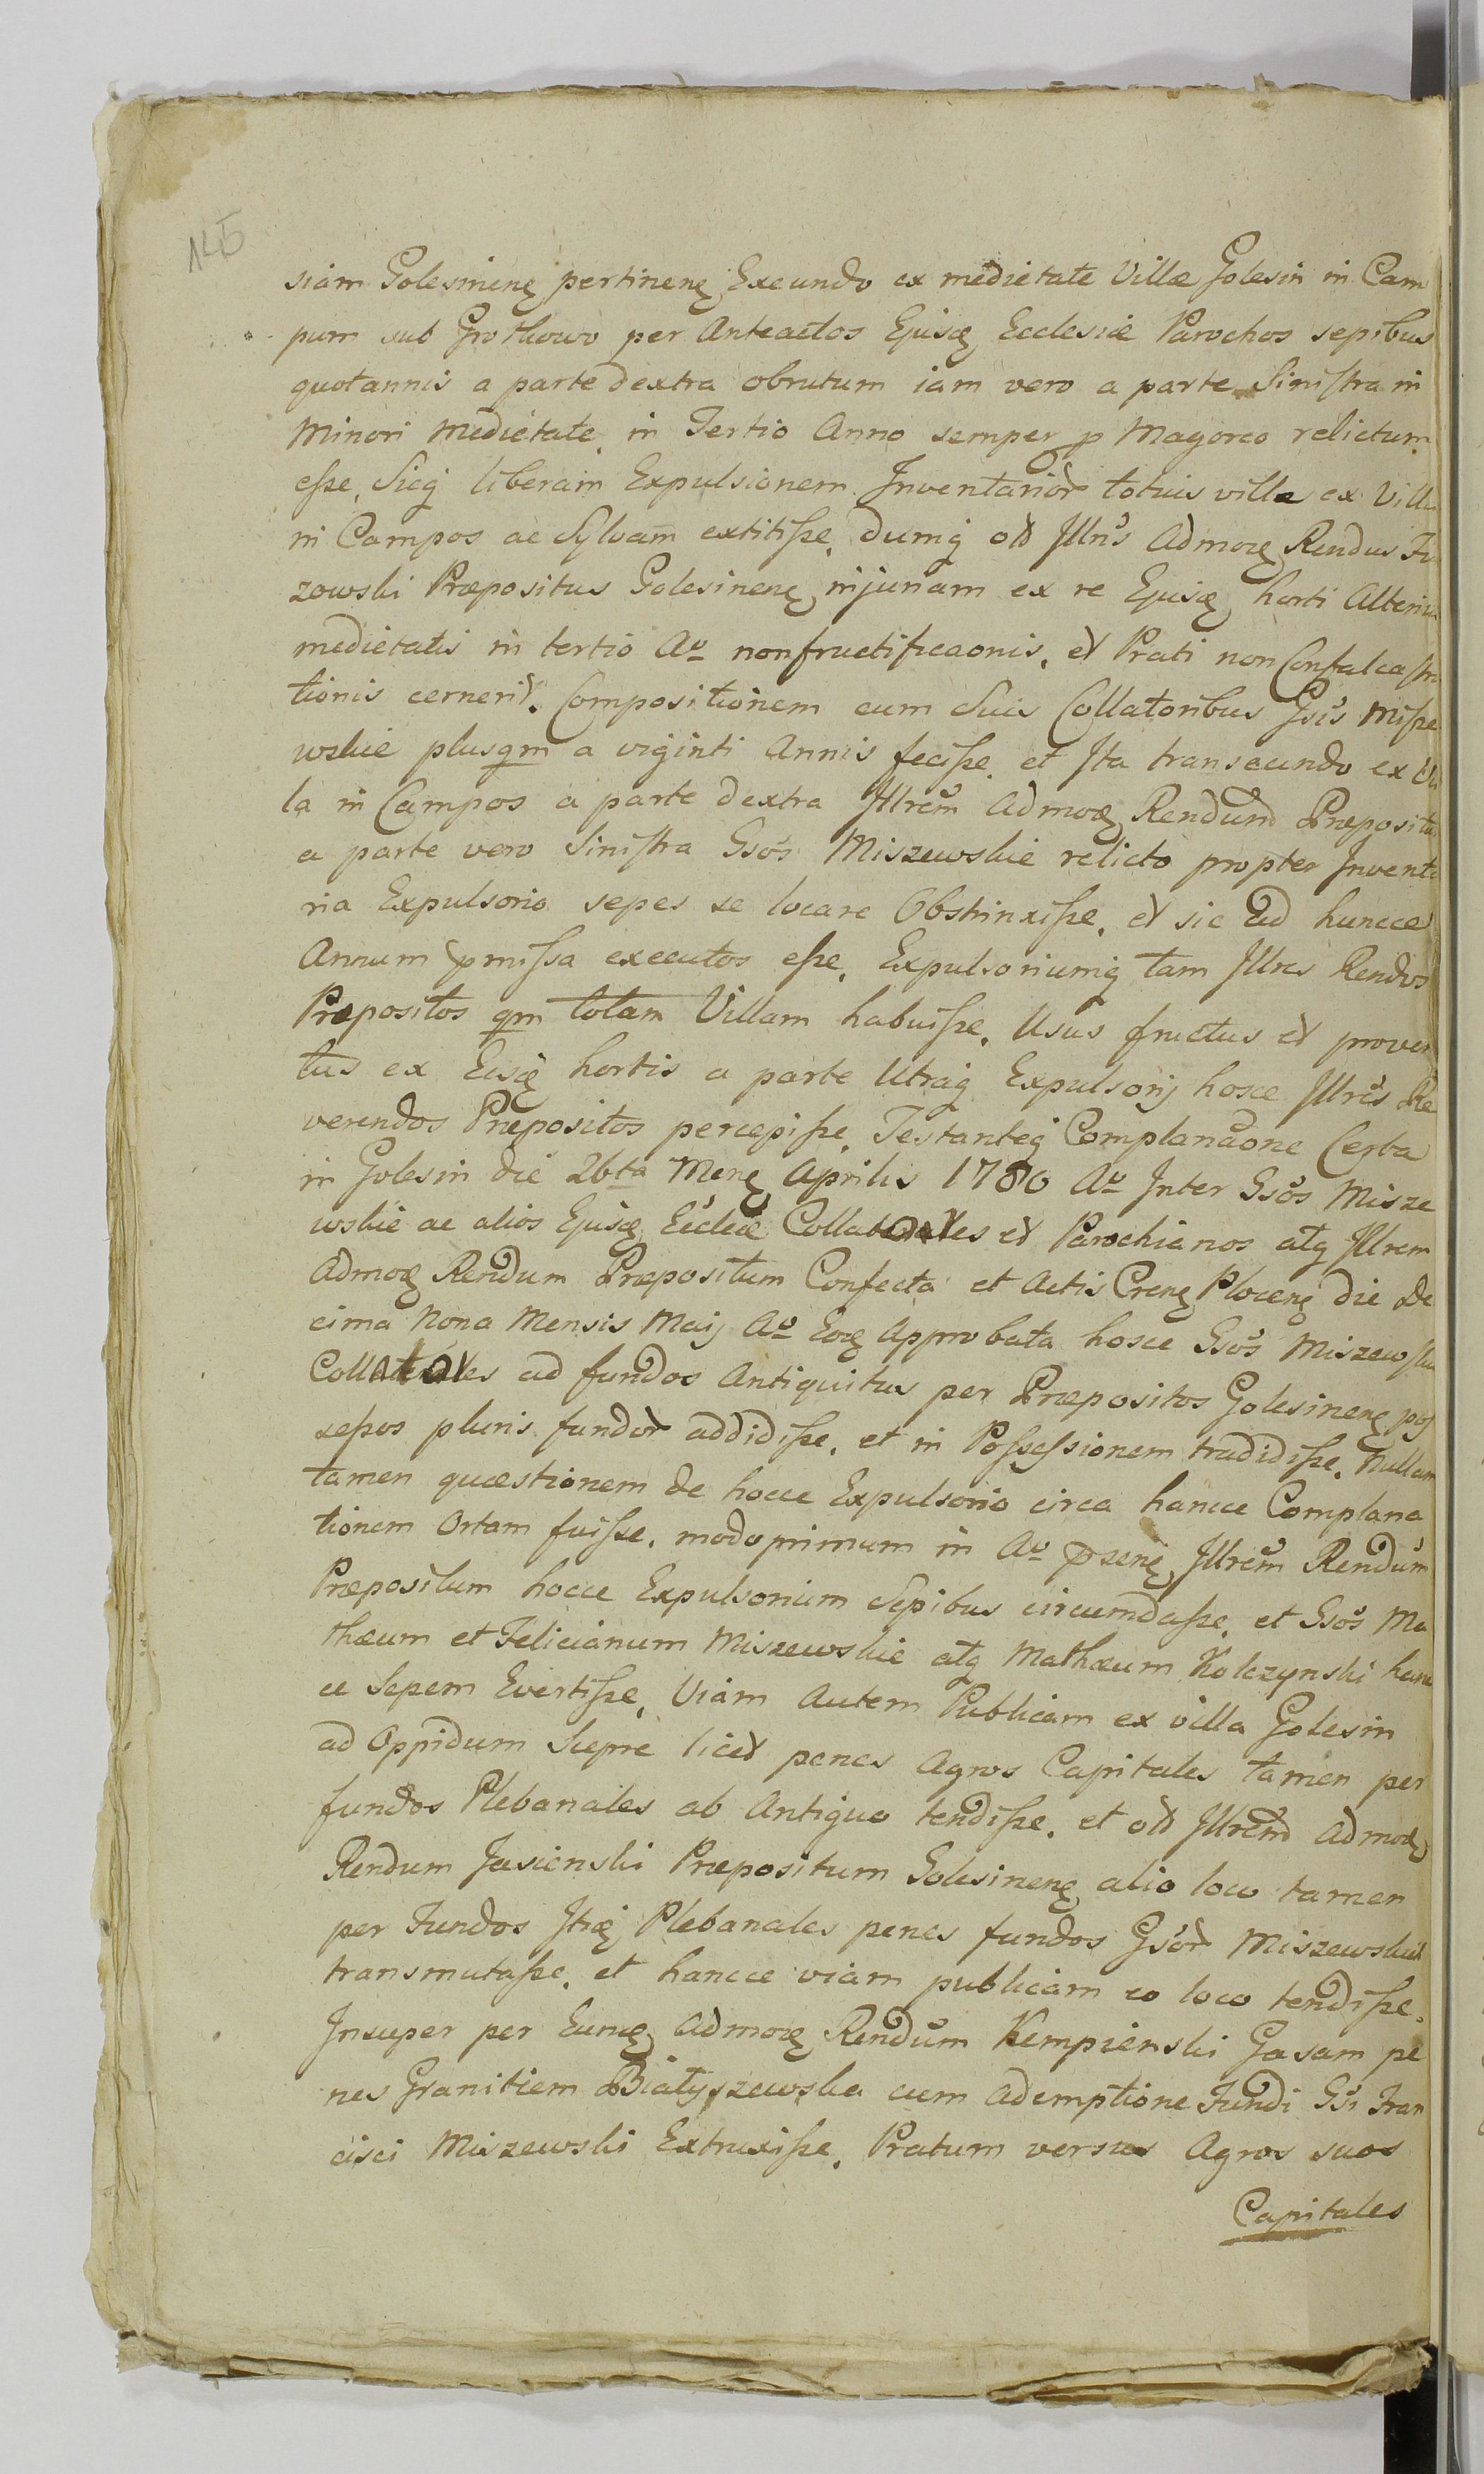 125
siam Golesinenę pertinenę Exeundo ex medietate Villæ Golesin in Cam
pum sub Grothowo per Anteactos Ejusdę Ecclesiæ Parochos sepibus
quotannis a parte dextra obrutum iam vero a parte Sinistra in
Minori medietate in Tertio Anno semper p Magorco relictum
esse, Sicq liberam Expulsionem Inventarior totius villæ ex Villa
in Campos ac Sylvam extitisse, dumq olt Illn̄s Admoę Rendus
zowski Præpositus Golesinenę injuriam ex re Ejusdę horti Alterius
medietatis in tertio Ao nonfructificaonis, et Prati non Confalcastra
tionis cernerit. Compositionem cum Suis Collatoribus Gsis Misze
wskie plusqm a viginti Annis fecisse, et Ita transeundo ex Vil
la in Campos a parte dextra Illrem Admoę Rendum Præpositu
a parte vero Sinistra Gsos Miszewskie relicto propter Inventa
ria Expulsorio sepes se locare Obstrinxisse, et sic ad huncce
Annum pmissa executos esse, Expulsoriumq tam Illres Rendos
Præpositos qm totam Villam habuisse, Usus fructus et proven
tus ex Eisdę hortis a parte Utraq Expulsorij hosce Illres Re
verendos Præpositos percepisse, Testanteq Complanaone
in Golesin die 26ta Menę Aprilis 1780 Ao Inter Gsos Misze
wskie ac alios Ejusdę Eccleæ Collatores et Parochianos atq Illrem
Admoę Rendum Præpositum Confecta et Actis Crenę Plocenę die De
cima Nona Mensis Maij Ao Eoę Approbata hosce Gsos Miszewskie
Collatores ad fundos Antiquitus per Præpositos Golesinenę pos
sessos pluris fundor addidisse, et in Possessionem tradidisse, Nullam
tamen quæstionem de hocce Expulsorio circa hancce Complana
tionem Ortam fuisse, modo primum in Ao psenę Illrem Rendum
Præpositum hocce Expulsorium Sepibus circumdasse, et Gsos Ma
thæum et Felicianum Miszewskie atq Mathæum Kolczynski hanc
ce Sepem Evertisse, Viam Autem Publicam ex villa Golesin
ad Oppidum Siepre licet penes Agros Capitales tamen per
fundos Plebanales ab Antiquo tendisse, et olt Illrem Admoę
Rendum Jasienski Præpositum Golesinenę alio loco tamen
per Fundos Itię Plebanales penes fundos Gsor Miszewskich
transmutasse, et hancce viam publicam eo loco tendisse.
Insuper per Eumę Admoę Rendum Kempienski Gasam pe
nes Granitiem Białyszewska cum Ademptione Fundi Gsi Fran
cisci Miszewski Extruxisse, Pratum versus Agros suos
Capitales